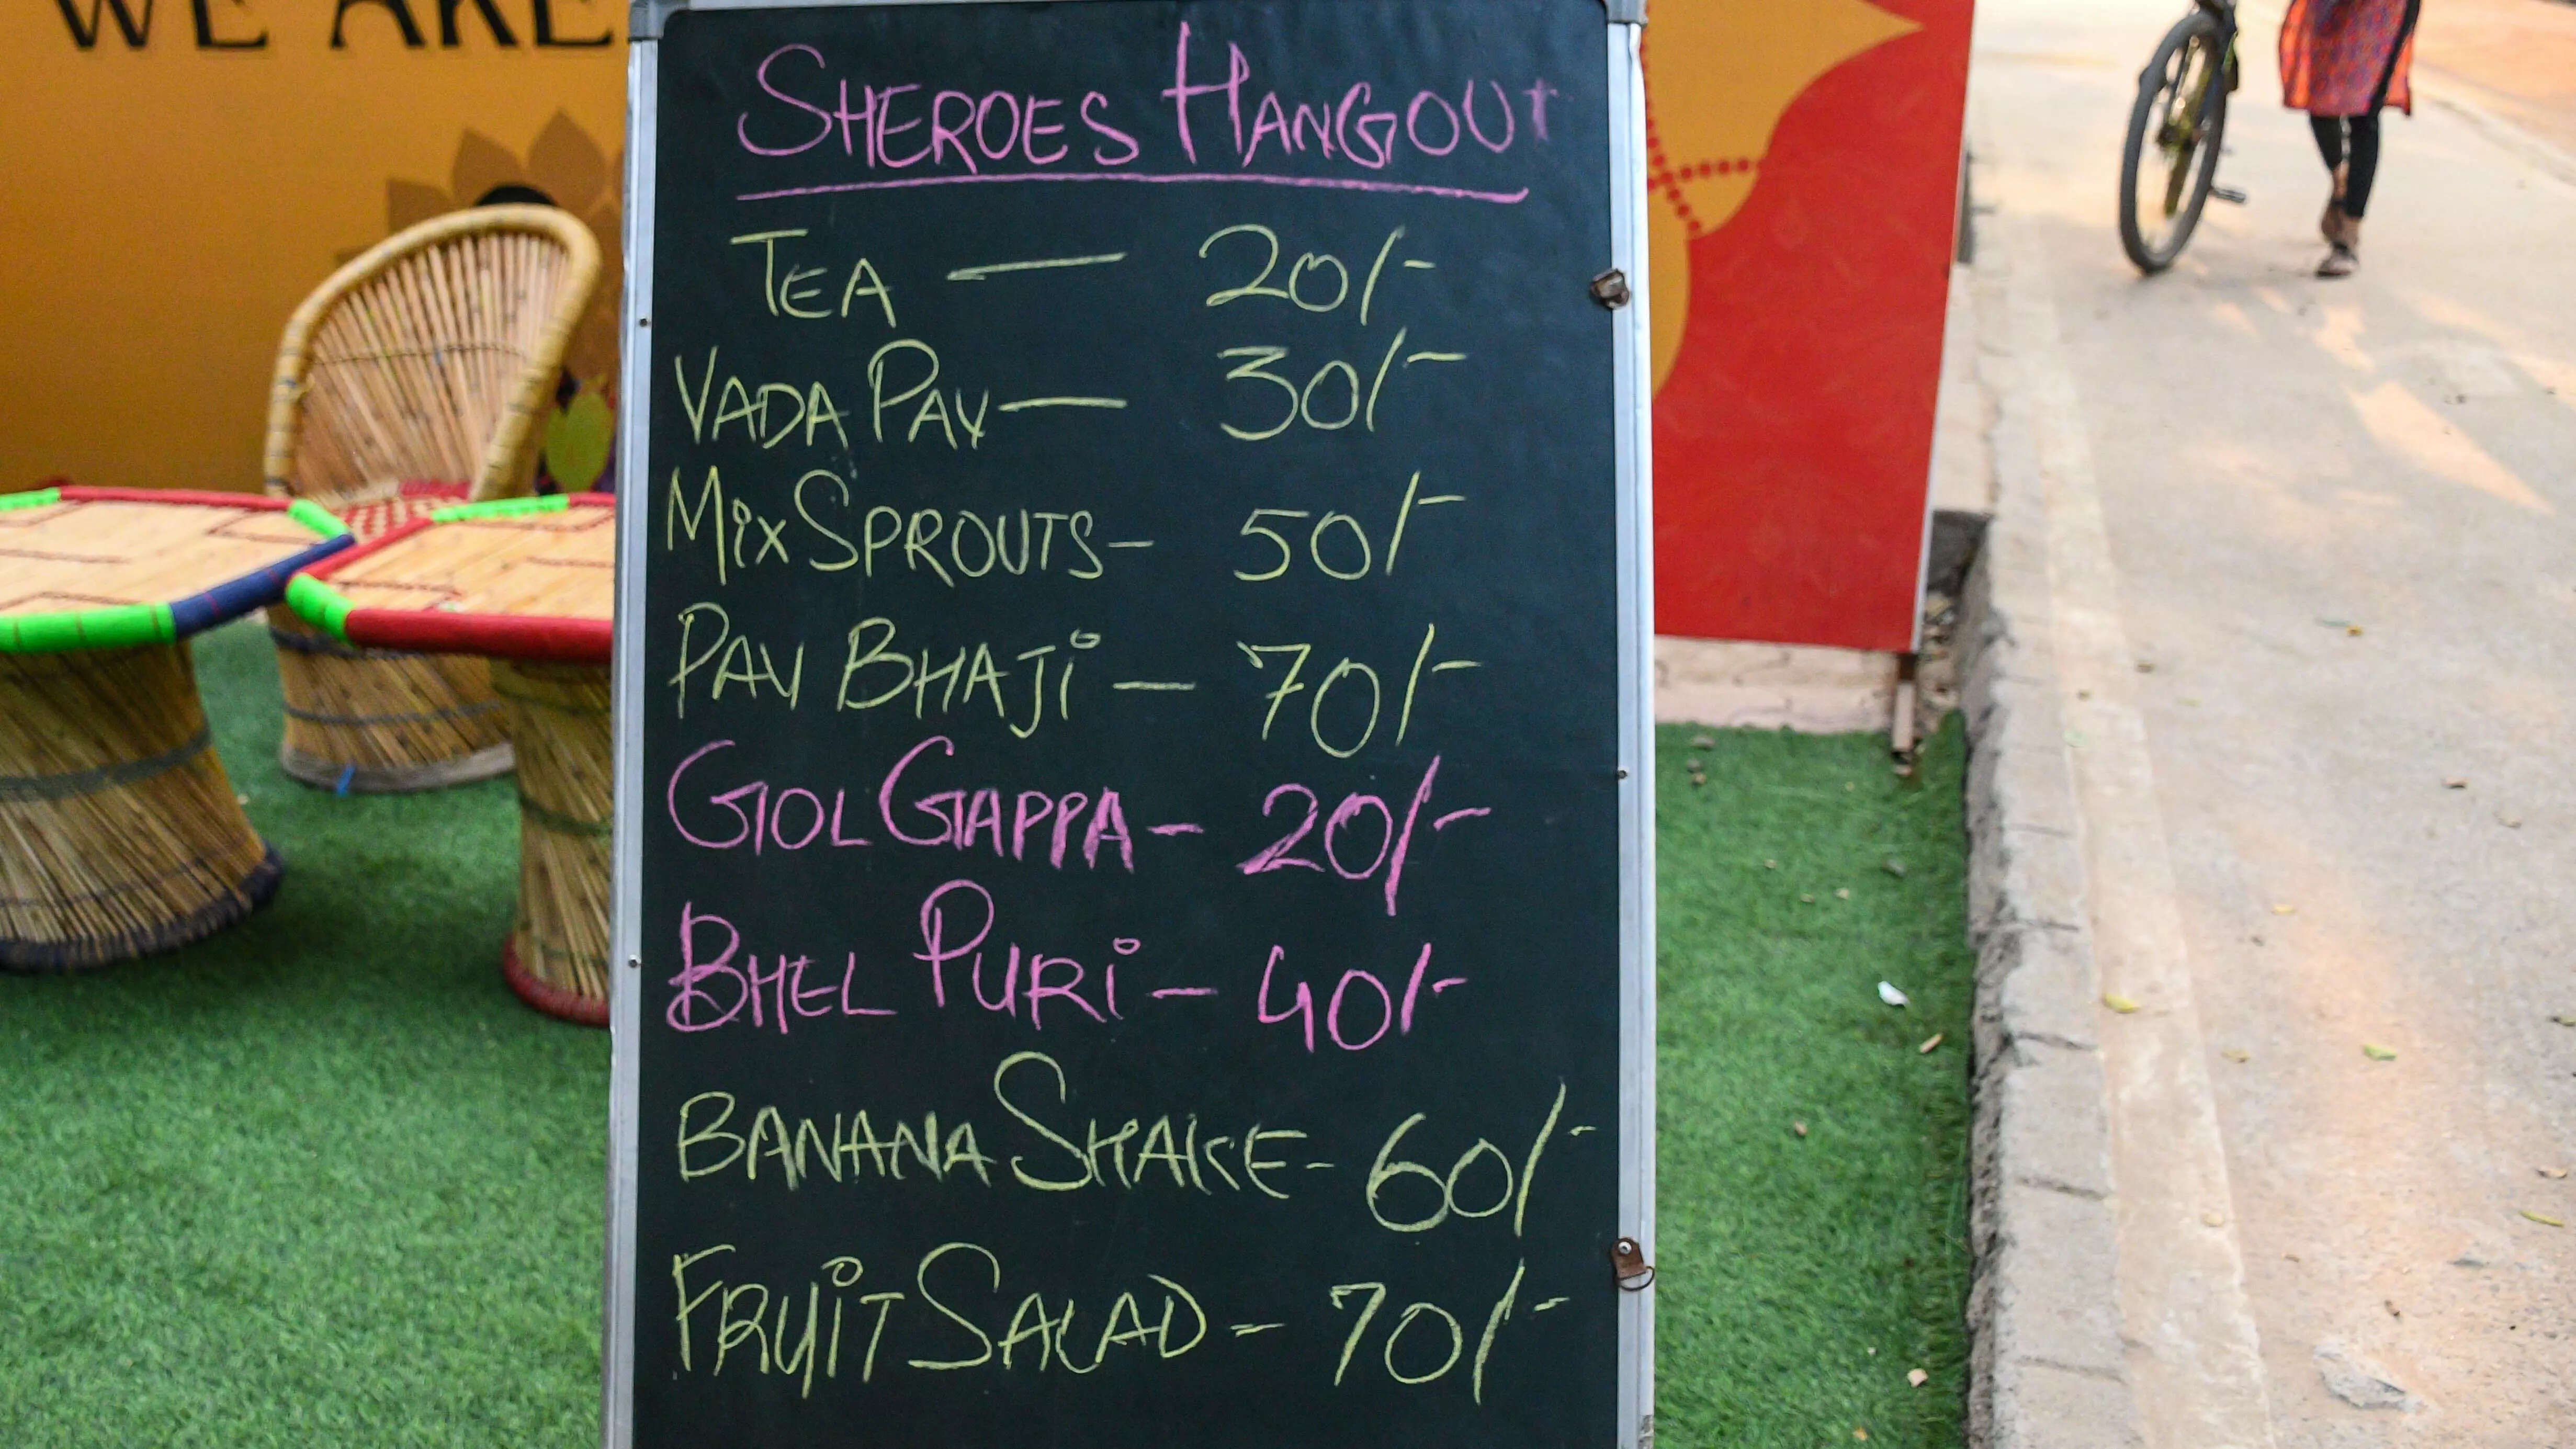 WE ARE
SHEROES HANGOUT
TEA — 20/-
VADA PAV — 30/-
MIX SPROUTS - 50/-
PAV BHAJI — 70/-
GOL GAPPA - 20/-
BHEL PURI - 40/-
BANANA SHAKE - 60/-
FRUIT SALAD - 70/-